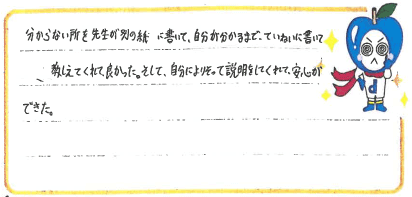 分からない所を先生が別の紙に書いて、自分が分かるまで、ていねいに書いて
教えてくれて良かった。そして、自分によりそって説明をしてくれて、安心が
できた。
d